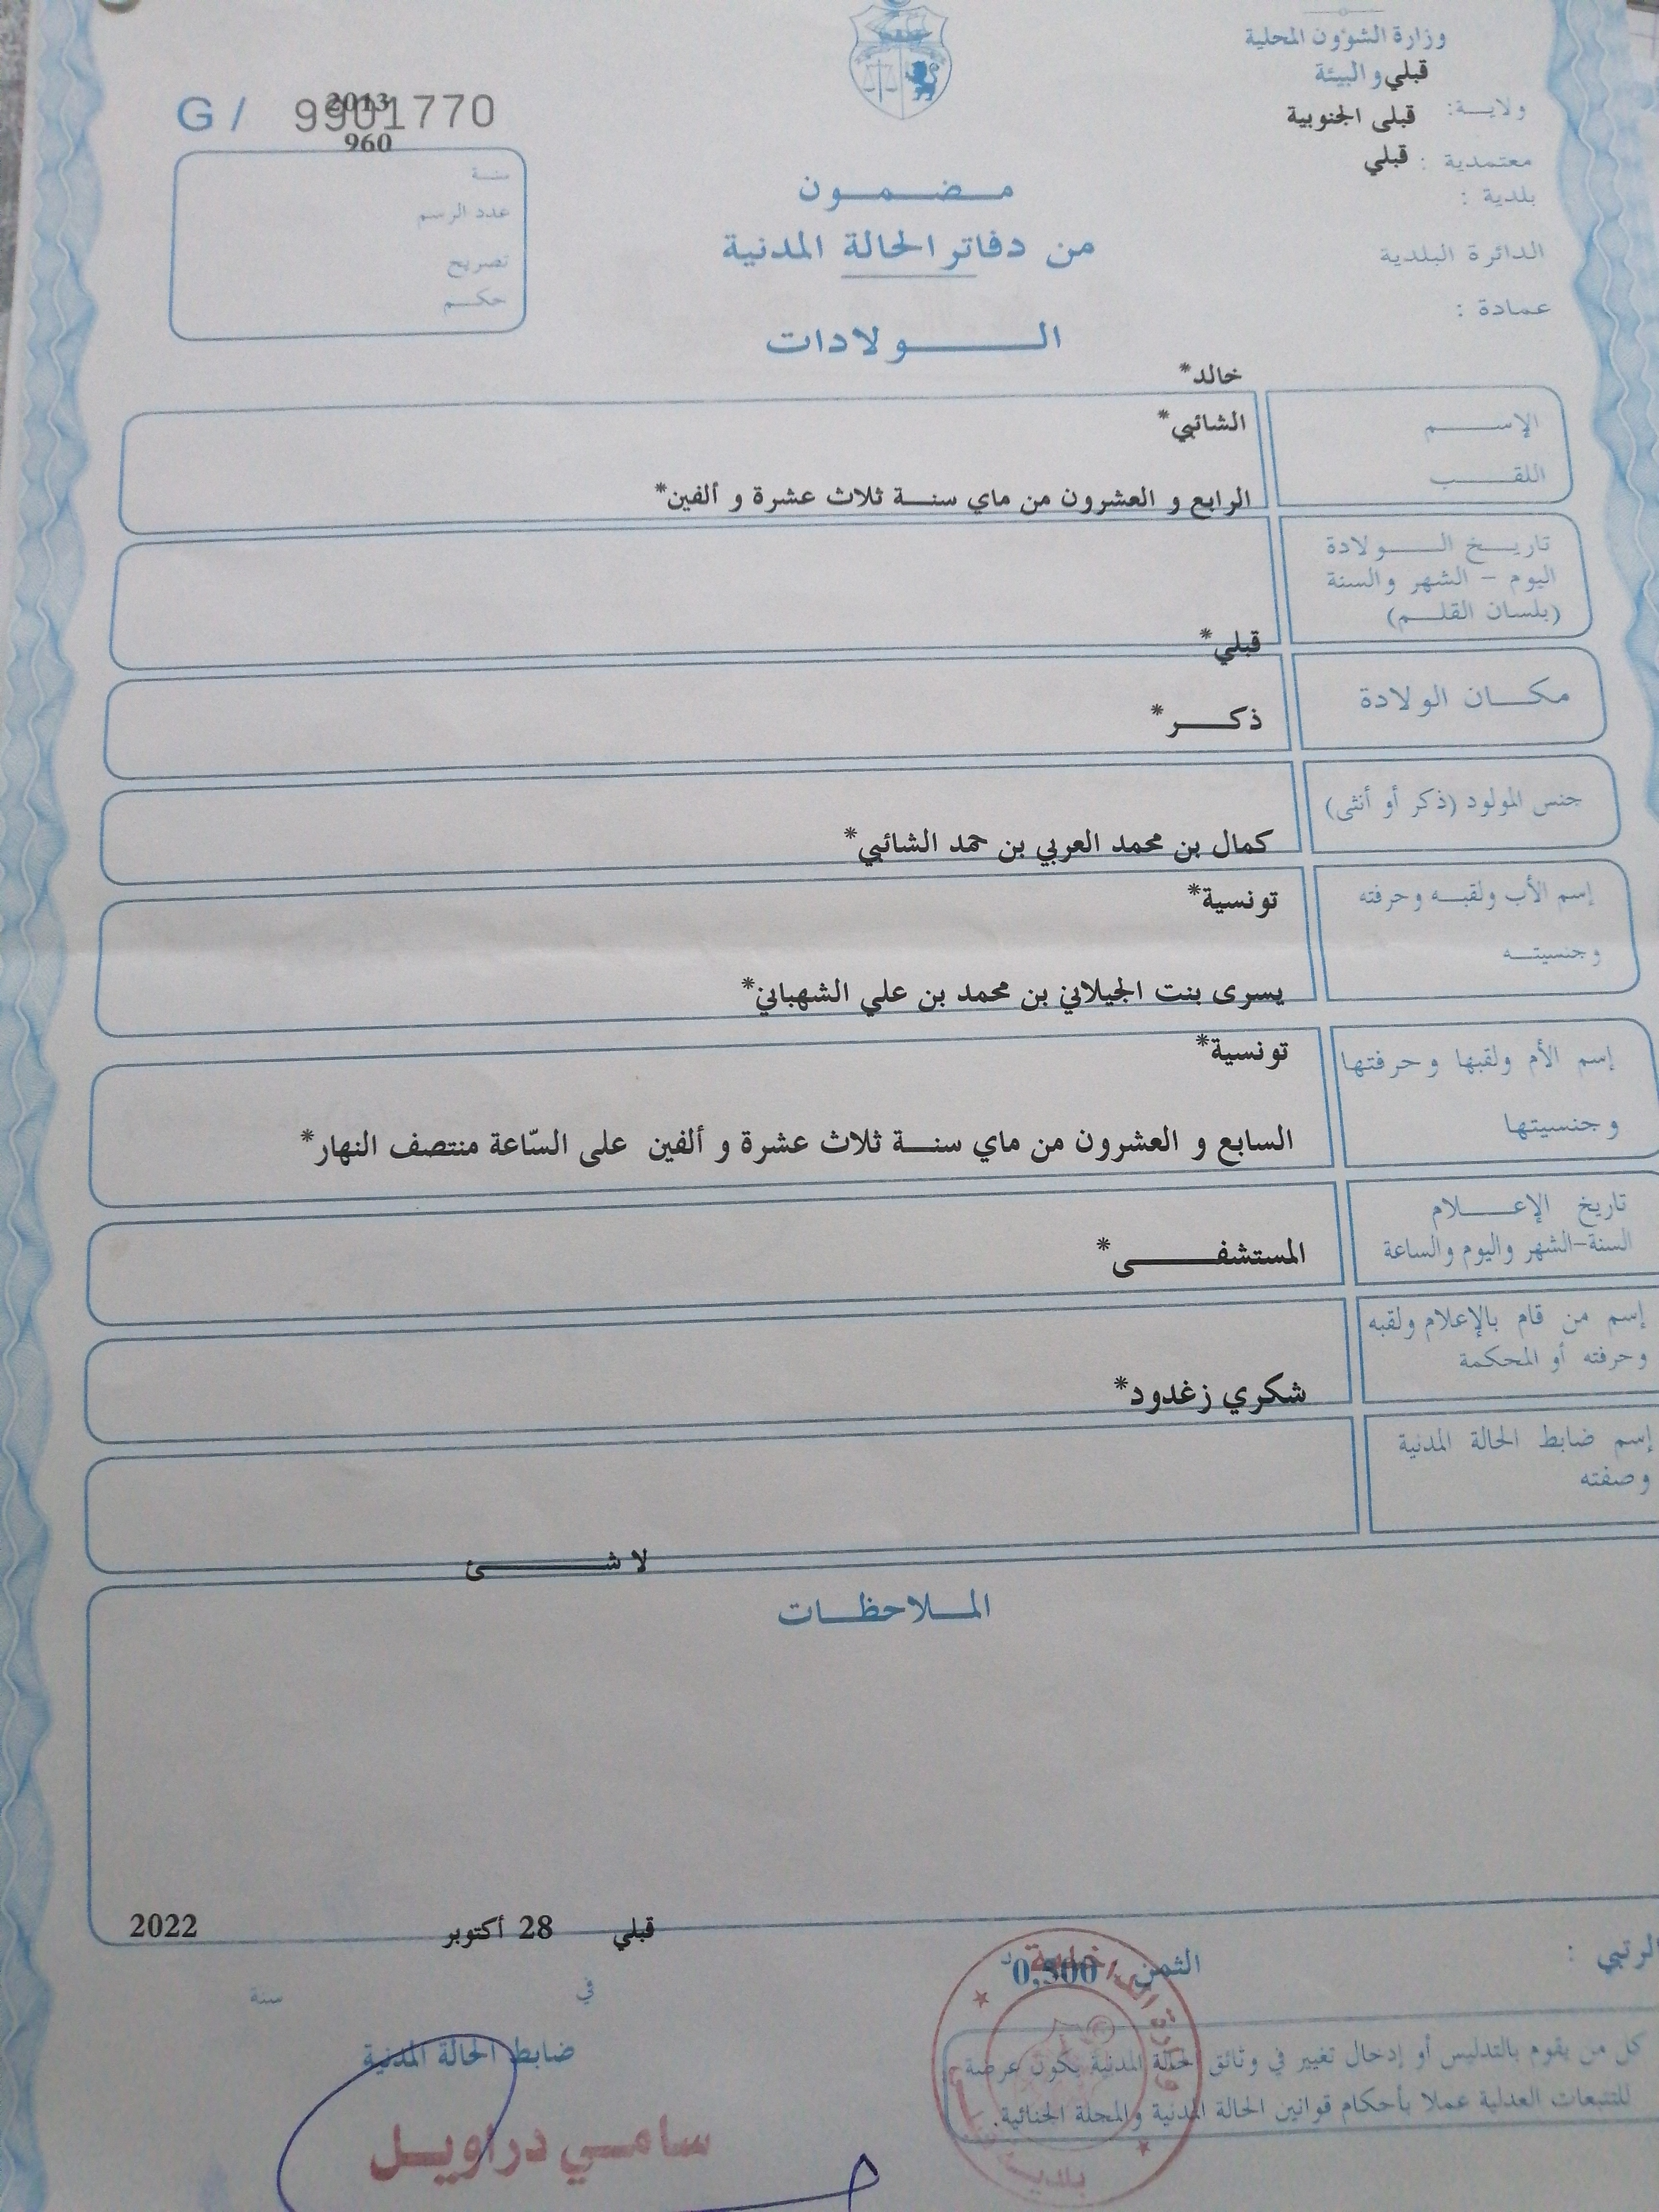 وزارة الشؤون المحلية
والبيئة قبلي
ولاية: قبلى الجنوبية
معتمدية : قبلي
بلدية :
الدائرة البلدية
عمادة :
G / 9901770
2013
960
سنة
عدد الرسم
تصريح
حكم
مضمون
من دفاتر الحالة المدنية
الولادات
خالد*
الإسم الشائبي*
اللقب
الرابع و العشرون من ماي سنة ثلاث عشرة و ألفين*
تاريخ الولادة
اليوم - الشهر والسنة
(بلسان القلم)
قبلي*
مكان الولادة
ذكر*
جنس المولود (ذكر أو أنثى)
كمال بن محمد العربي بن حمد الشائبي*
إسم الأب ولقبه وحرفته
تونسية*
وجنسيته
يسرى بنت الجيلاني بن محمد بن علي الشهباني*
إسم الأم ولقبها وحرفتها
تونسية*
وجنسيتها
السابع و العشرون من ماي سنة ثلاث عشرة و ألفين على السّاعة منتصف النهار*
تاريخ الإعلام
السنة-الشهر واليوم والساعة
المستشفى*
إسم من قام بالإعلام ولقبه
وحرفته أو المحكمة
شكري زغدود*
إسم ضابط الحالة المدنية
وصفته
لا شئ
الملاحظات
قبلي 28 أكتوبر 2022
الرتبي :
الثمن 0,500 د
في سنة
ضابط الحالة المدنية
كل من يقوم بالتدليس أو إدخال تغيير في وثائق الحالة المدنية يكون عرضة
للتتبعات العدلية عملا بأحكام قوانين الحالة المدنية والمجلة الجنائية.
سامي دراويل
وزارة الداخلية
بلدية